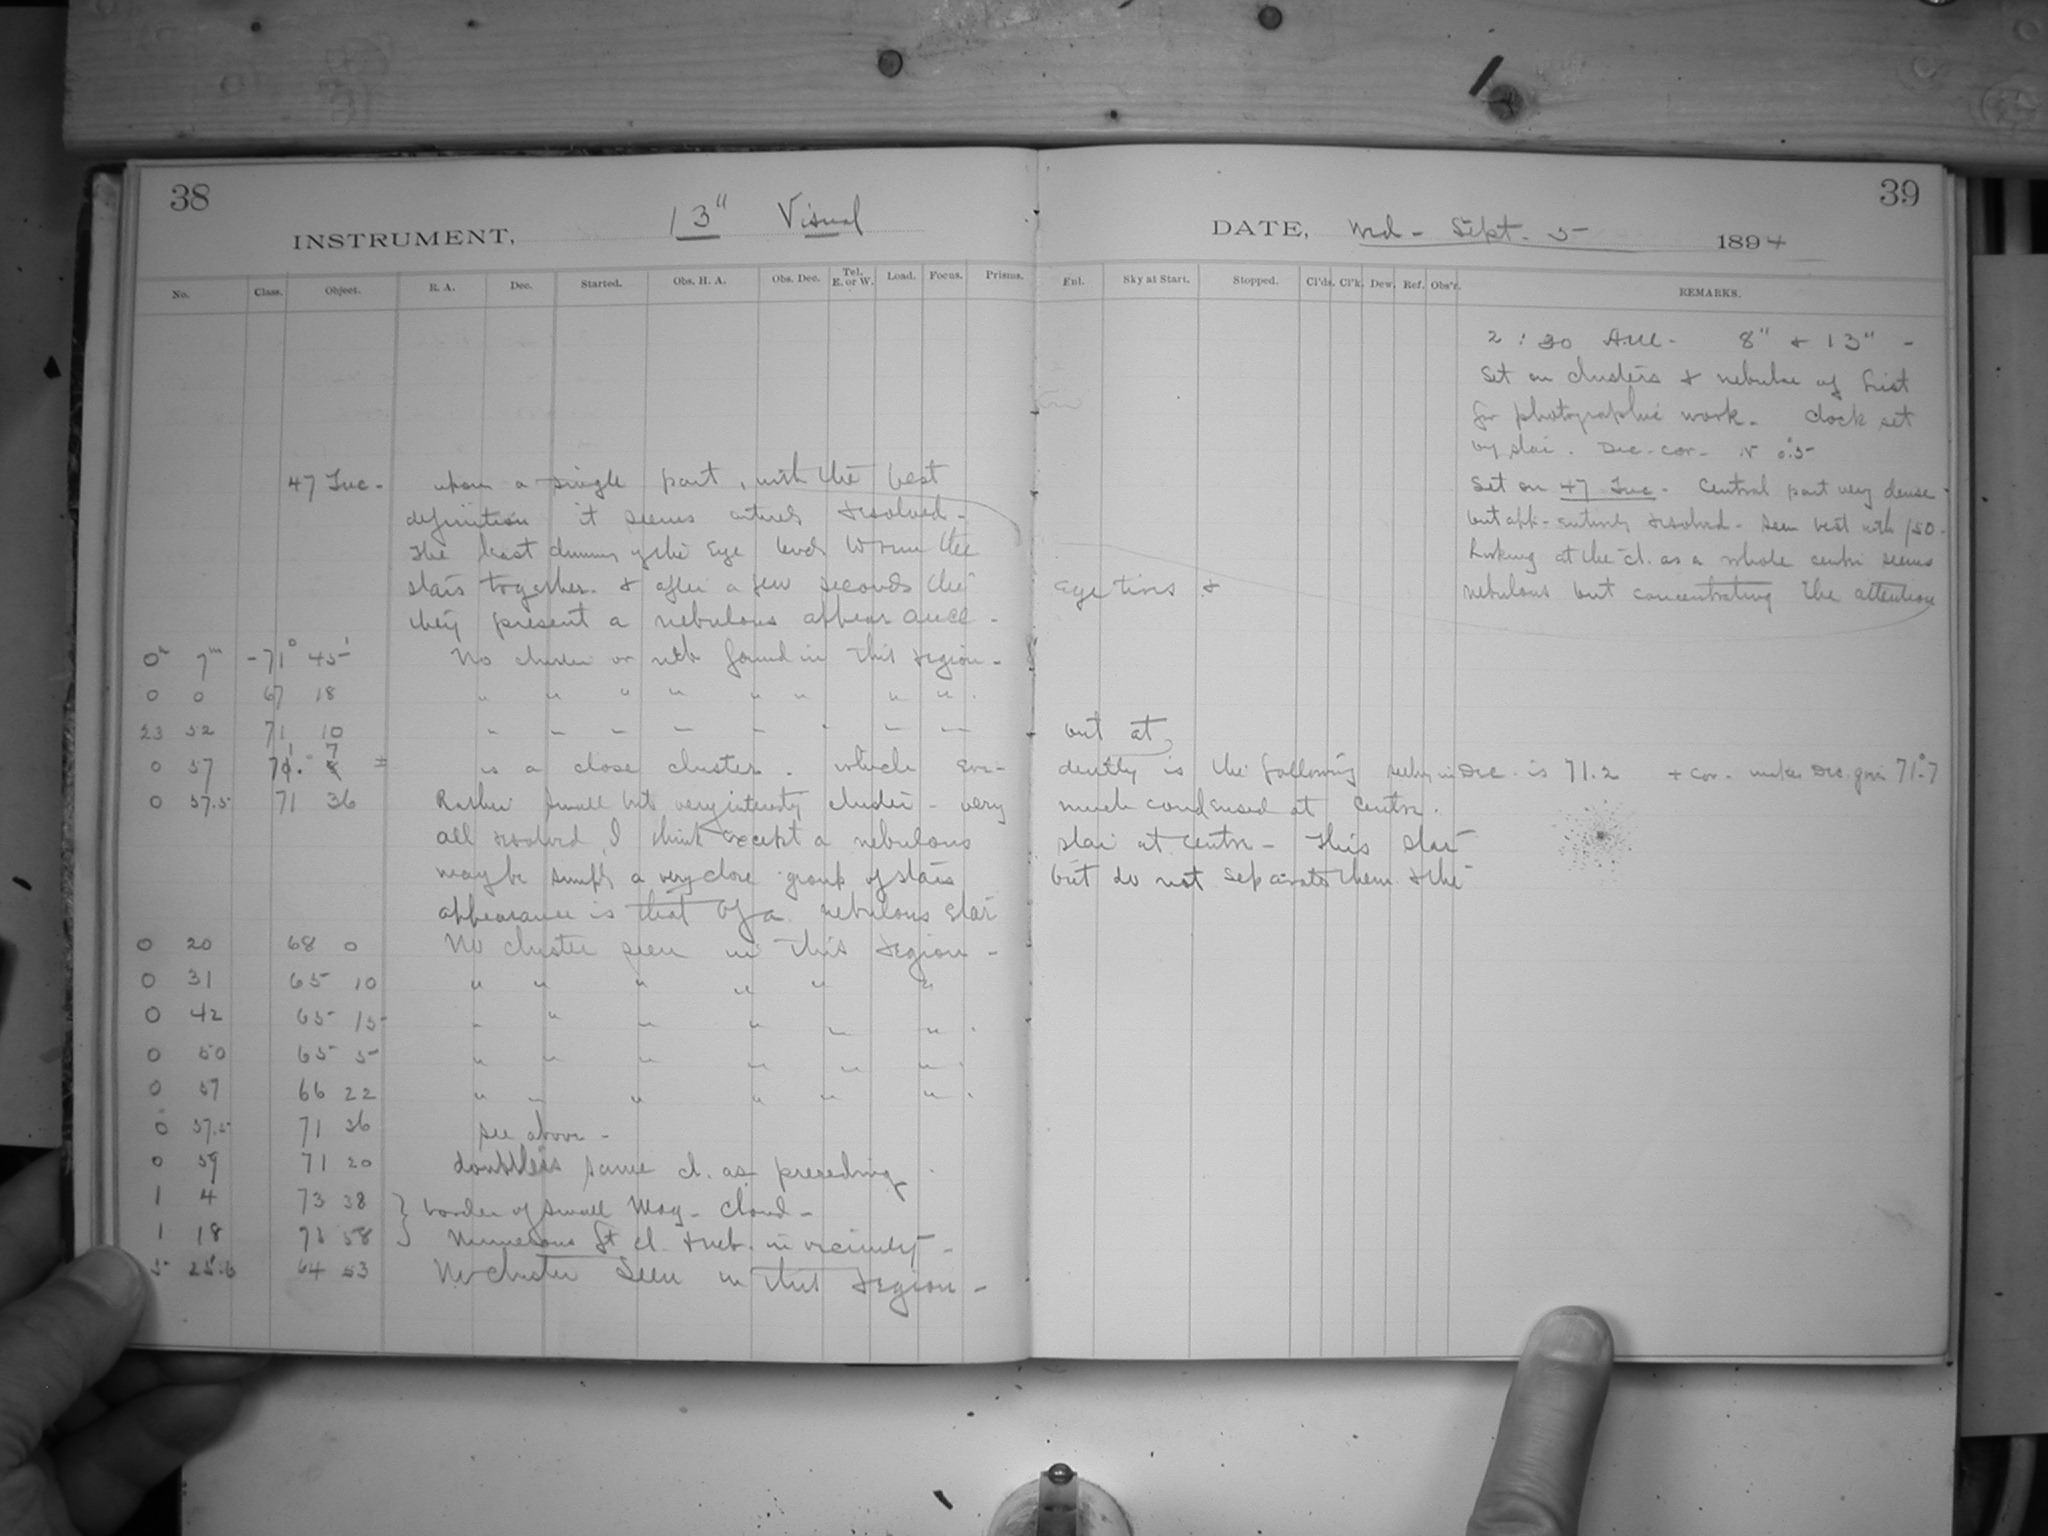 38
INSTRUMENT, 13" Visual
No. Class. Object. R. A. Dec. Started. Obs. H. A. Obs. Dec. Tel. E. or W. Load. Focus. Prisms.
47 Tuc - upon a single part, with the best
definition it seems entirely resolved -
The least dimness of the Eye tends to run the
stars together & after a few seconds the
they present a nebulous appearance -
0h 7m -71° 45' No cluster or neb found in this region -
0 0 67 18 " " " " " " " " .
23 52 71 10 " " " " " " " "
0 57 71. 7 ± is a close cluster. which evi-
0 57.5 71 36 Rather small but very interestg cluster - very
all resolved, I think except a nebulous
may be simply a very close group of stars
appearance is that of a nebulous star
0 20 68 0 No cluster seen in this region -
0 31 65 10 " " " " " "
0 42 65 15 " " " " " " .
0 50 65 5 " " " " " " .
0 57 66 22 " " " " " " .
0 57.5 71 36 see above -
0 59 71 20 doubtless same cl. as preceding
1 4 73 38 } border of small Mag - Cloud -
1 18 73 58 } Numerous St cl. & neb. in vicinity -
5 25.6 64 53 No cluster seen in this region -
39
DATE, Wed - Sept. 5 1894
Enl. Sky at Start. Stopped. Cl'ds. Cl'k. Dew. Ref. Obs'r. REMARKS.
2:30 A.M. 8" & 13" -
Set on clusters & nebulae of List
for photographic work. Clock set
by star. Dec. cor. N 0°.5
Set on 47 Tuc - Central part very dense -
but app. entirely resolved - seen best with 150 -
Looking at the cl. as a whole centre seems
nebulous but concentrating the attention
Eye tires &
but at
dently is the following in Dec. is 71.2 + cor. makes Dec. 71°.7
much condensed at Centre.
star at Centre - This star
but do not separate them & the